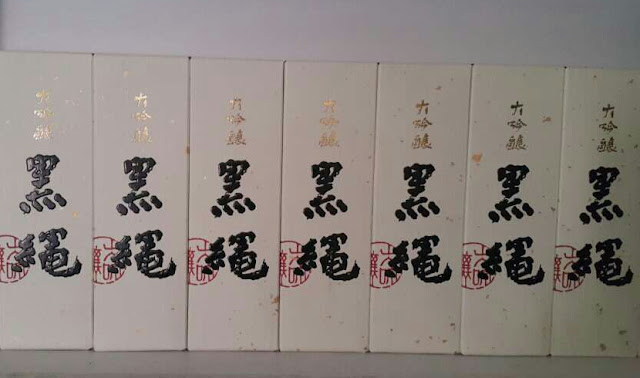 大吟醸
黒縄
大吟醸
黒縄
大吟醸
黒縄
大吟醸
黒縄
大吟醸
黒縄
大吟醸
黒縄
大吟醸
黒縄